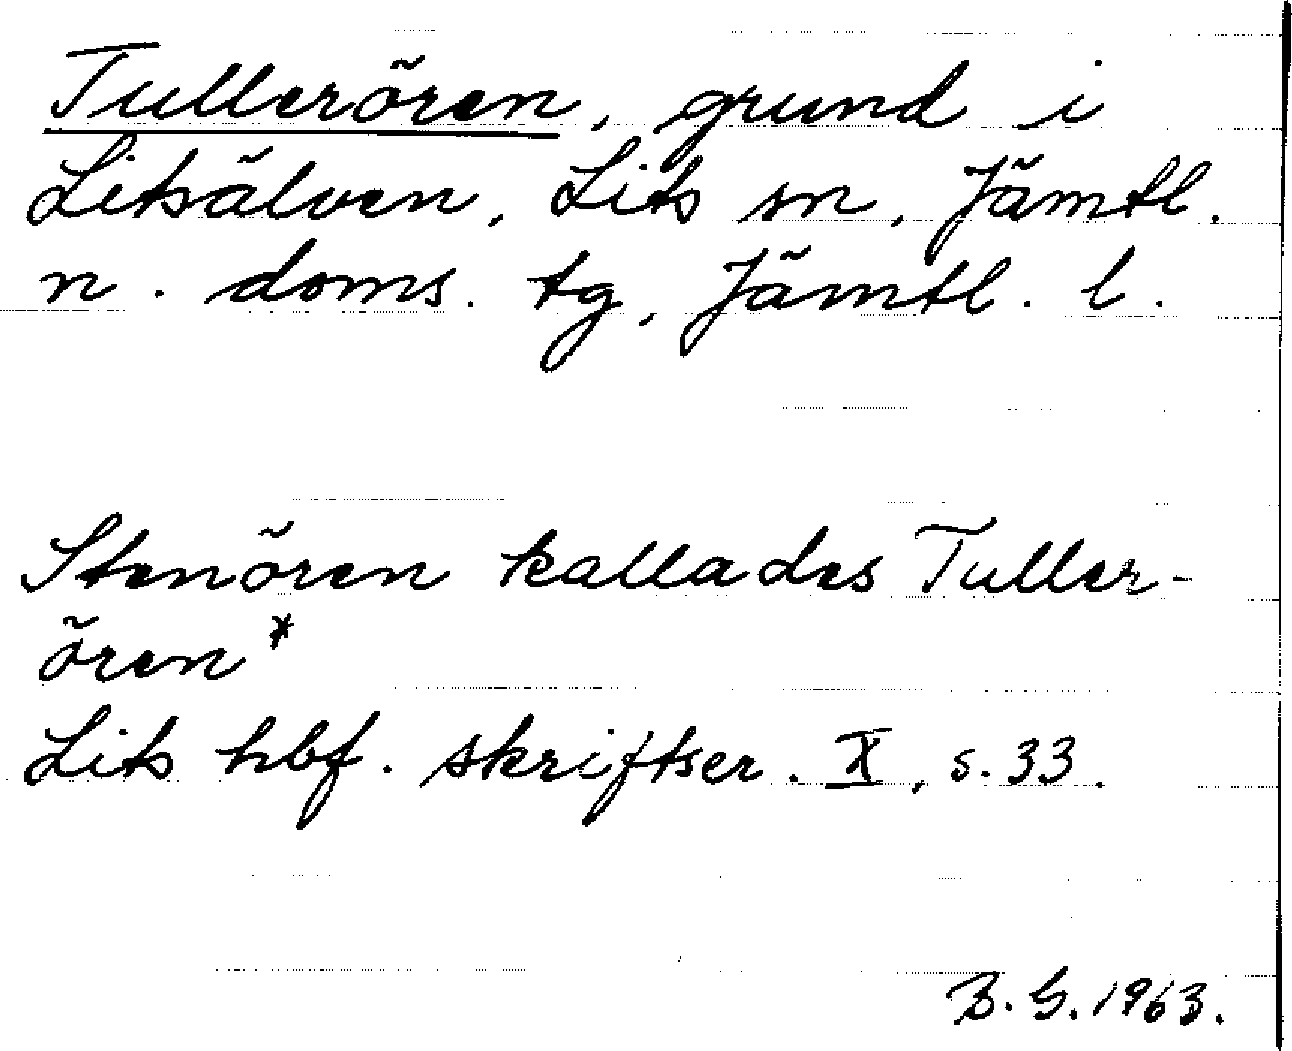 Tullerören, grund i
Litsälven, Lits sn, Jämtl.
n. doms. tg, Jämtl. l.
Stenören kallades Tuller-
ören*
Lits hbf. skriftser. X, s. 33.
B. G. 1963.